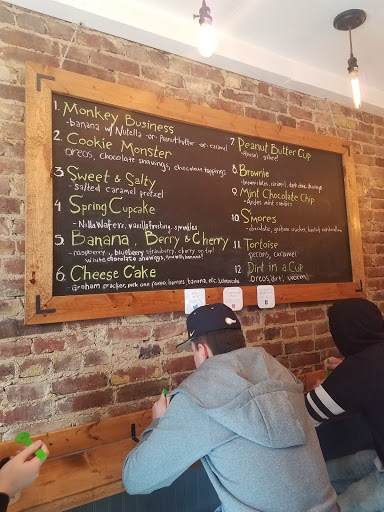 1. Monkey Business
-banana w/ Nutella -or- Peanutbutter -or- caramel
2. Cookie Monster
oreos, chocolate shavings, chocolate toppings
3. Sweet & Salty
-salted caramel pretzel
4. Spring Cupcake
-Nilla Wafers, vanilla frosting, sprinkles
5. Banana, Berry & Cherry
-raspberry, blueberry, strawberry, cherry on top!
white chocolate shavings,
6. Cheese Cake
Graham cracker, berries, banana, etc.
7. Peanut Butter Cup
8. Brownie
9. Mint Chocolate Chip
-Andes mint candies
10 Smores
-chocolate, graham cracker,
11 Tortoise
pecans, caramel
12 Dirt in a Cup
oreos/dirt, worms!